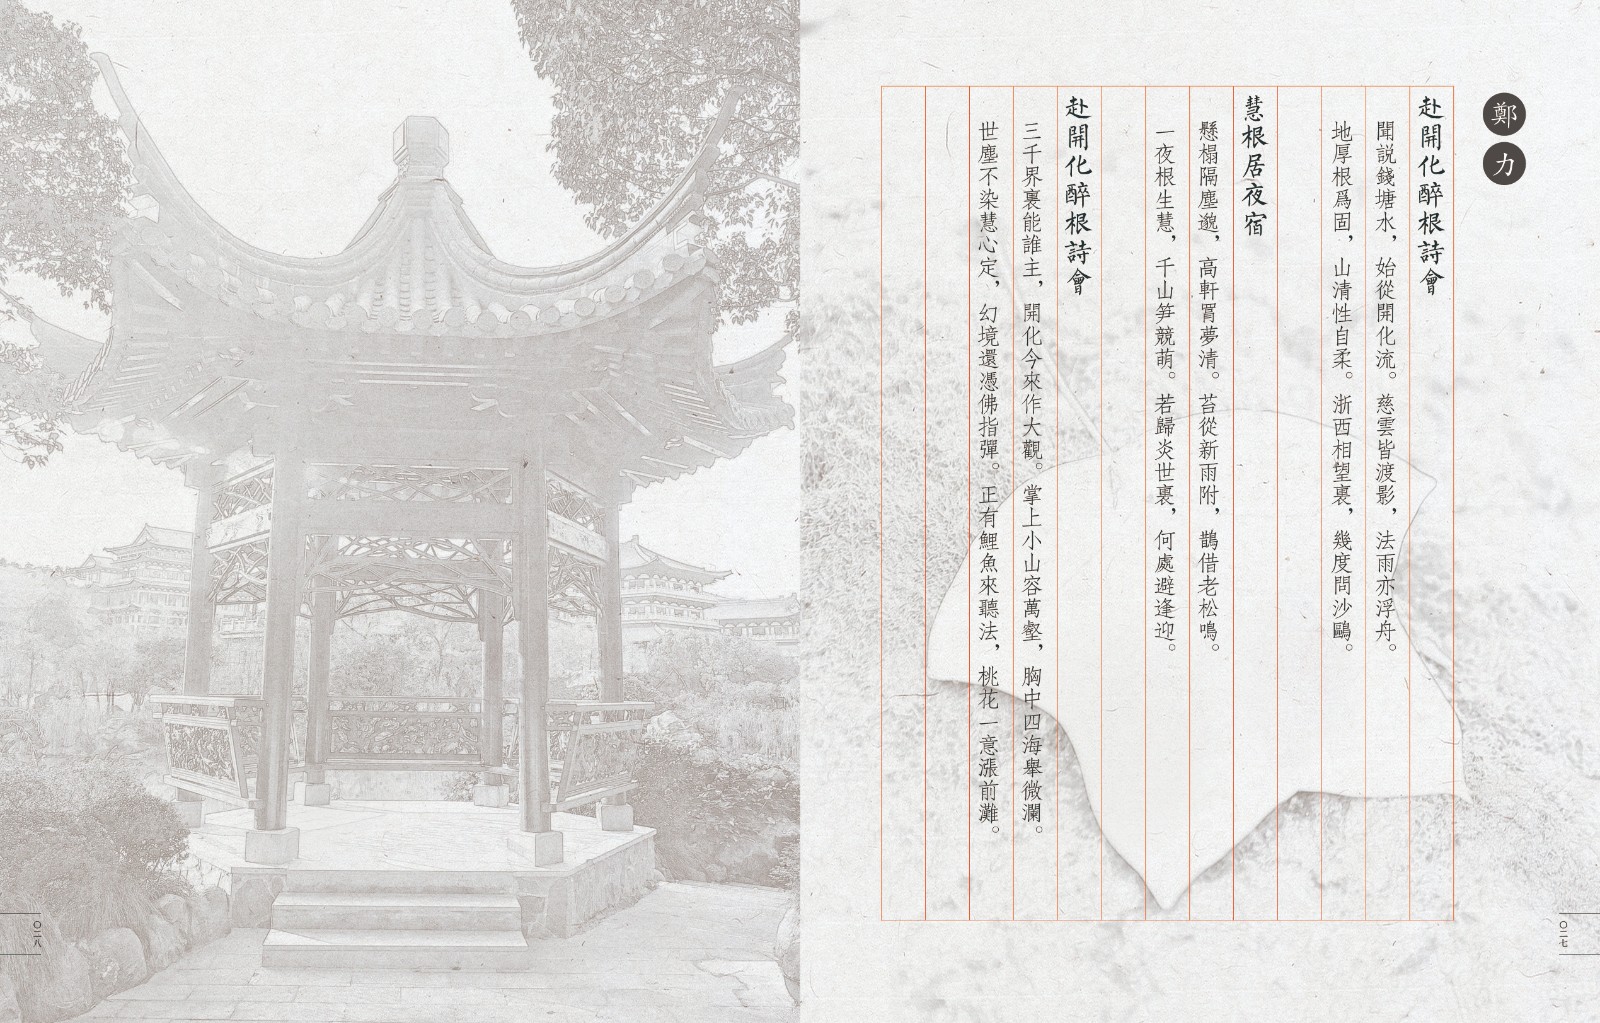 鄭力
赴開化醉根詩會
聞説錢塘水，始從開化流。慈雲皆渡影，法雨亦浮舟。
地厚根爲固，山清性自柔。浙西相望裏，幾度問沙鷗。
慧根居夜宿
懸榻隔塵邈，高軒罥夢清。苔從新雨附，鵲借老松鳴。
一夜根生慧，千山笋競萌。若歸炎世裏，何處避逢迎。
赴開化醉根詩會
三千界裏能誰主，開化今來作大觀。掌上小山容萬壑，胸中四海舉微瀾。
世塵不染慧心定，幻境還憑佛指彈。正有鯉魚來聽法，桃花一意漲前灘。
〇二七
〇二八